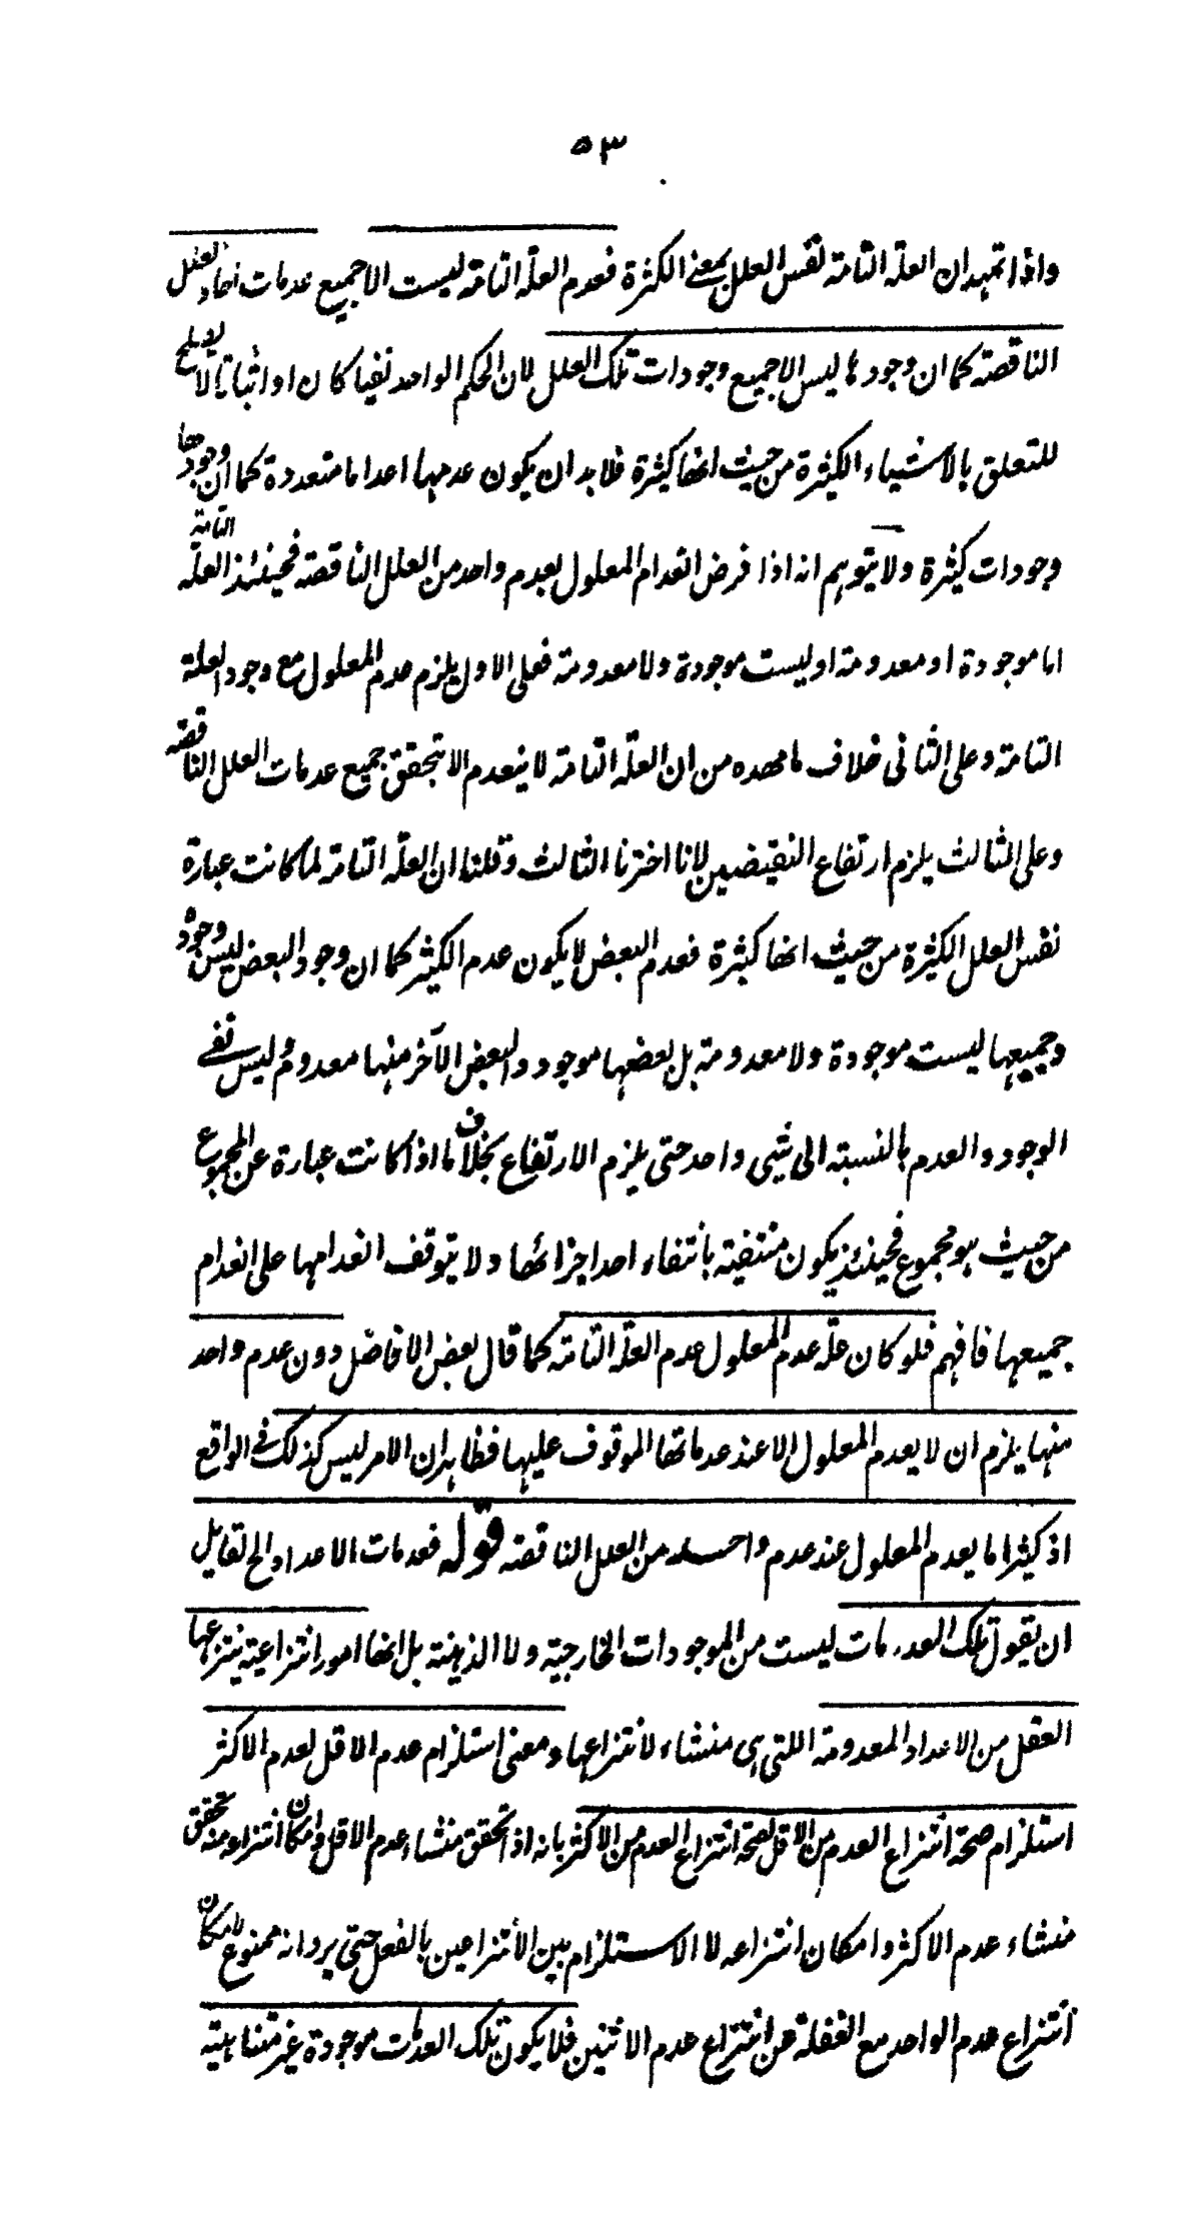 ٥٣
واذا تمهد ان العلة التامة نفس العلل بمعنى الكثرة فعدم العلة التامة ليست الا جميع عدمات احاد العلل
الناقصة كما ان وجودها ليس الا جميع وجودات تلك العلل لان الحكم الواحد نفيا كان او اثباتا لا يصلح
للتعلق بالاشياء الكثيرة من حيث انها كثيرة فلا بد ان يكون عدمها اعداما متعددة كما ان وجودها
وجودات كثيرة ولا يتوهم انه اذا فرض انعدام المعلول بعدم واحد من العلل الناقصة فحينئذ العلة التامة
اما موجودة او معدومة او ليست موجودة ولا معدومة فعلى الاول يلزم عدم المعلول مع وجود العلة
التامة وعلى الثاني خلاف ما مهده من ان العلة التامة لا ينعدم الا بتحقق جميع عدمات العلل الناقصة
وعلى الثالث يلزم ارتفاع النقيضين لانا اخترنا الثالث وقلنا ان العلة التامة لما كانت عبارة
نفس العلل الكثيرة من حيث انها كثيرة فعدم البعض لا يكون عدم الكثير كما ان وجود البعض ليس وجوده
وجميعها ليست موجودة ولا معدومة بل بعضها موجود والبعض الآخر منها معدوم وليس نفى
الوجود والعدم بالنسبة الى شيى واحد حتى يلزم الارتفاع بخلاف ما اذا كانت عبارة عن المجموع
من حيث هو مجموع فحينئذ يكون منتفية بانتفاء احد اجزائها ولا يتوقف انعدامها على انعدام
جميعها فافهم فلو كان علة عدم المعلول عدم العلة التامة كما قال بعض الافاضل دون عدم واحد
منها يلزم ان لا يعدم المعلول الا عند عدماتها الموقوف عليها فظاهر ان الامر ليس كذلك في الواقع
اذ كثيرا ما يعدم المعلول عند عدم واحد من العلل الناقصة قوله فعدمات الاعداد الخ لقايل
ان يقول تلك العدمات ليست من الموجودات الخارجية ولا الذهنية بل انها امور انتزاعية ينتزعها
العقل من الاعداد المعدومة اللتى هى منشاء لانتزاعها ومعنى استلزام عدم الاقل لعدم الاكثر
استلزام صحة انتزاع العدم من الاقل لصحة انتزاع العدم من الاكثر بانه اذا تحقق منشاء عدم الاقل وامكان انتزاعه منه تحقق
منشاء عدم الاكثر وامكان انتزاعه لا الاستلزام بين الانتزاعين بالفعل حتى يرد انه ممنوع لامكان
انتزاع عدم الواحد مع الغفلة عن انتزاع عدم الاثنين فلا يكون تلك العدمات موجودة غير متناهية